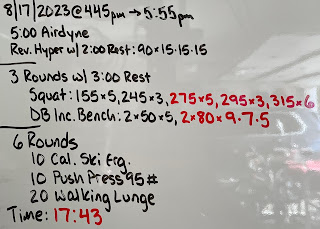 8/17/2023 @ 445pm → 5:55pm
5:00 Airdyne
Rev. Hyper w/ 2:00 Rest: 90×15·15·15
3 Rounds w/ 3:00 Rest
Squat: 155×5, 245×3, 275×5, 295×3, 315×6
DB Inc. Bench: 2×50×5, 2×80×9·7·5
6 Rounds
10 Cal. Ski Erg.
10 Push Press 95#
20 Walking Lunge
Time: 17:43